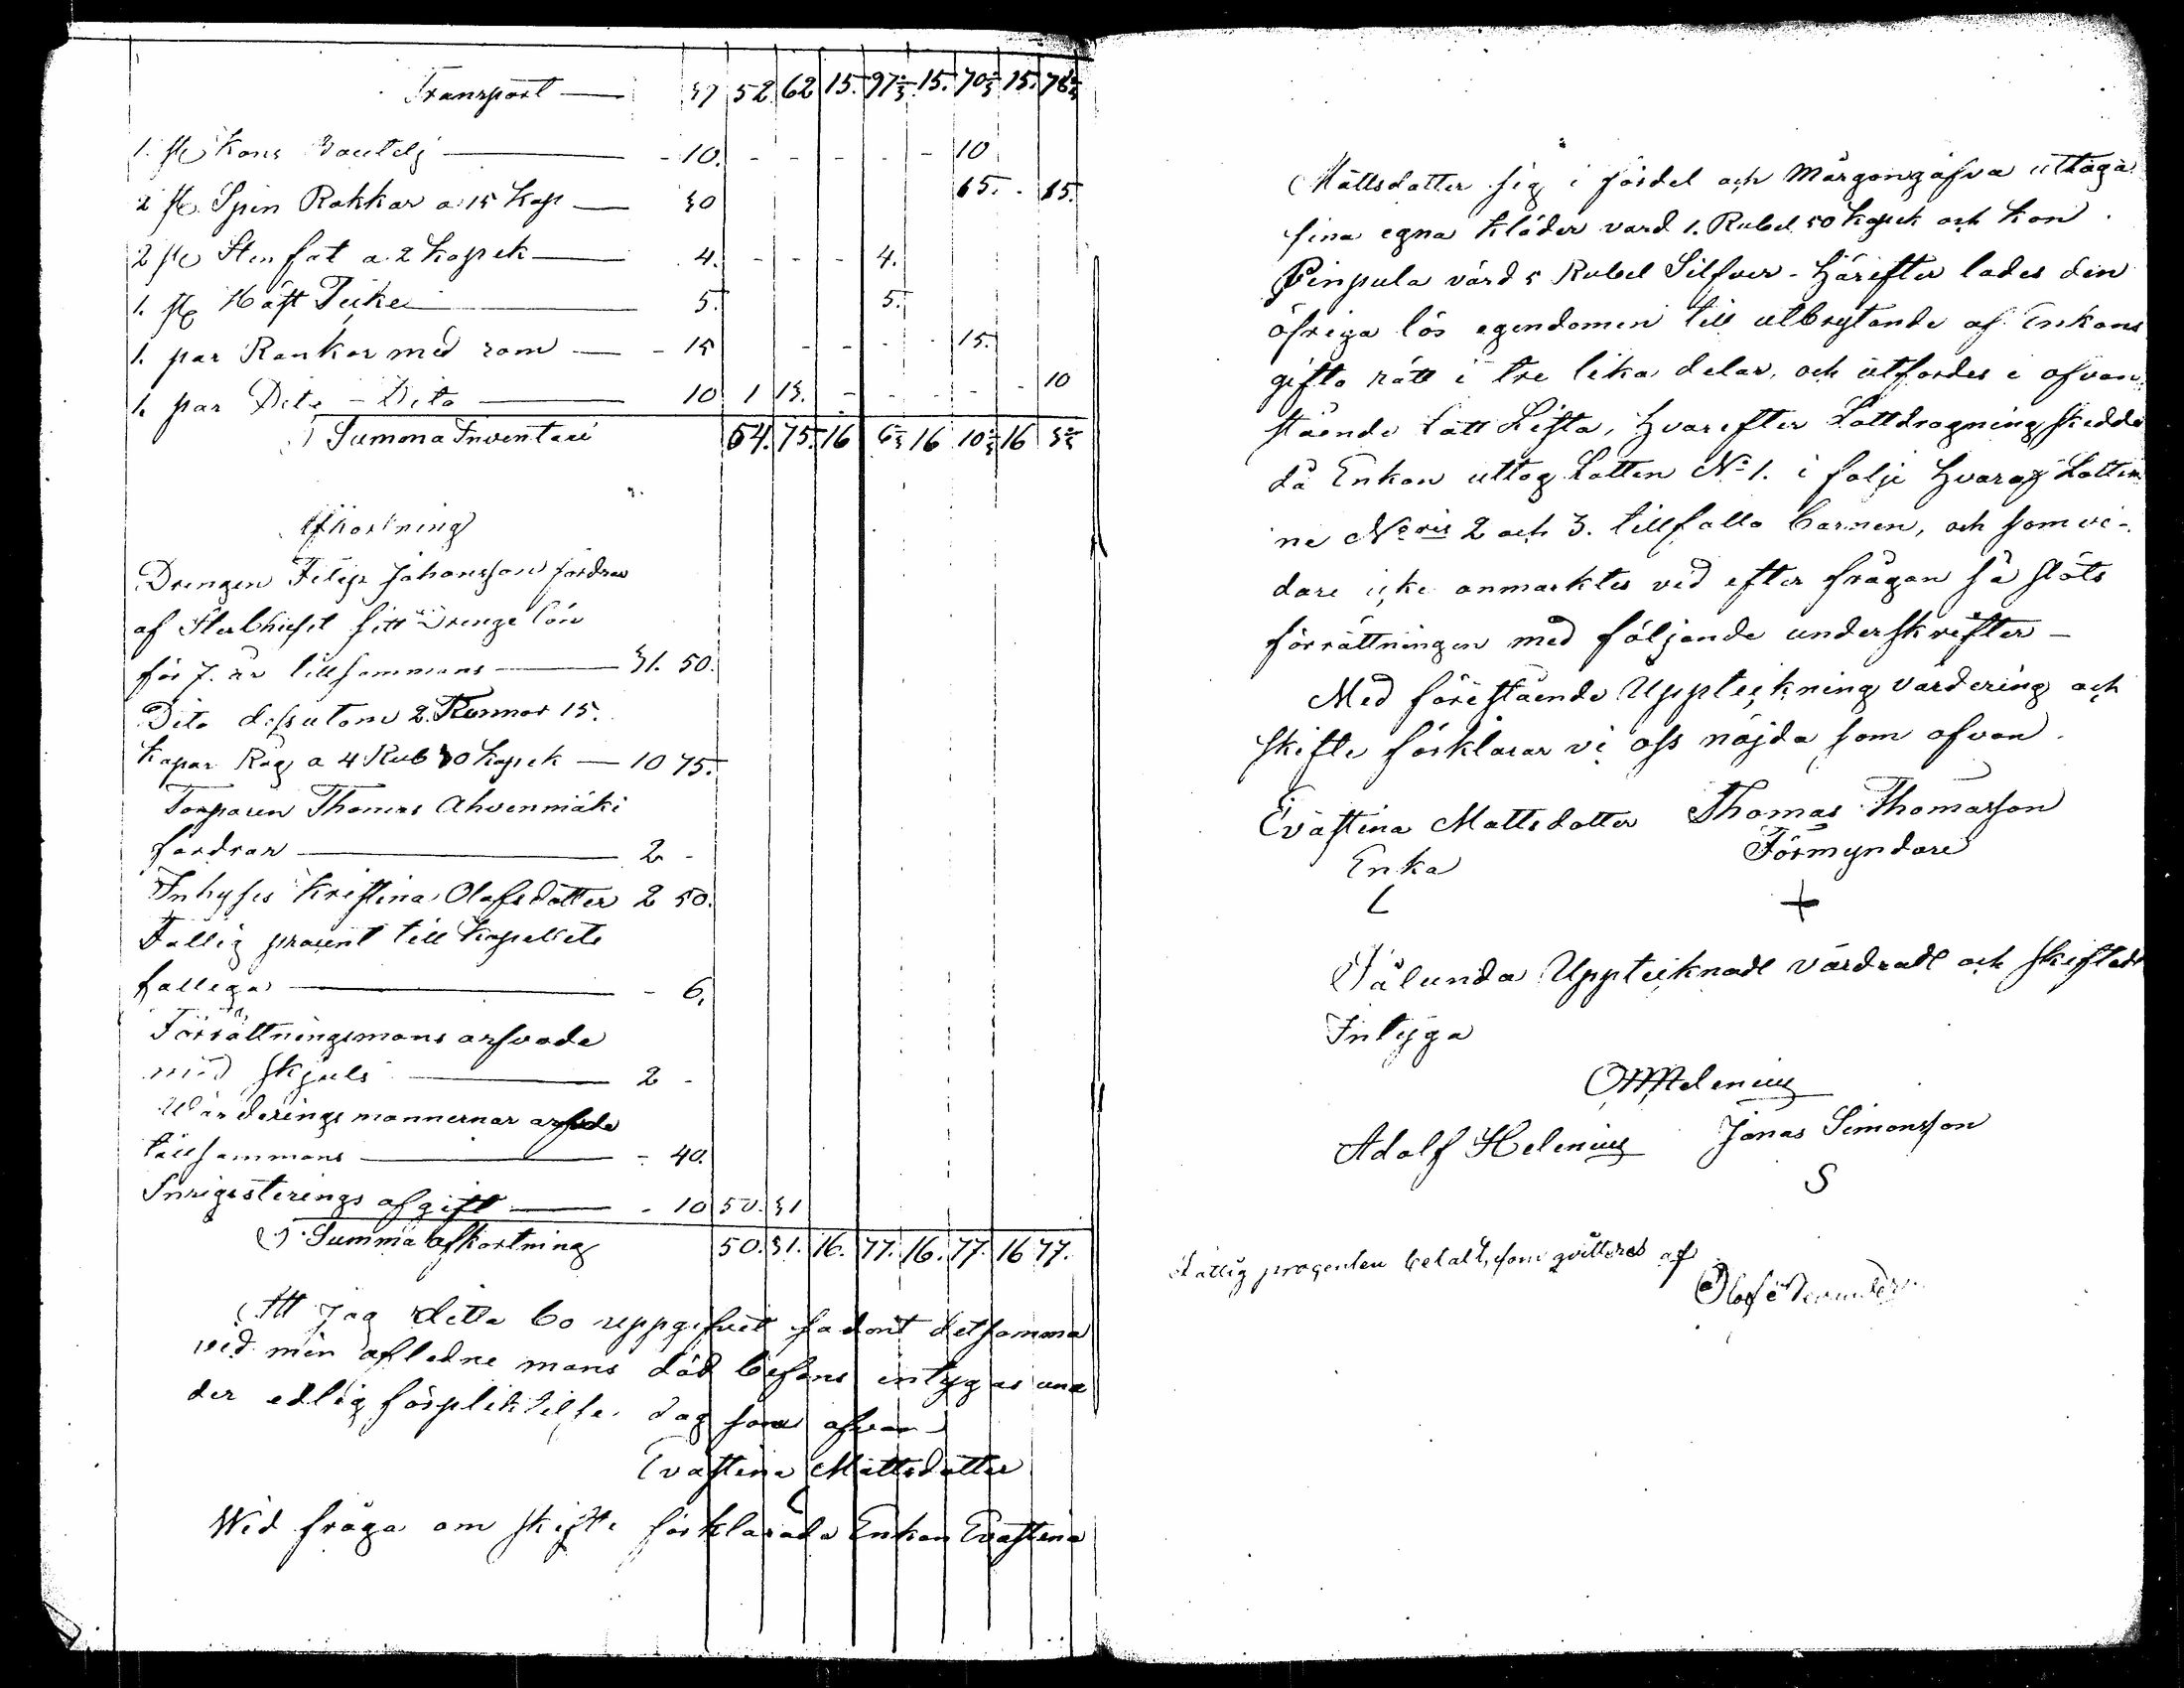 Transport — 37 52 62 15. 97 2/3 15. 70 2/3 15. 78 2/3
1. st Kons Boutelj — - 10. - - - - - 10
2 st Spin Rokkar a 15 Kop — 30 65. - 85.
2 st Stenfat a 2 Kopek — 4. - - - 4.
1. st Häst — 5. 5.
1. par Rankor med ram — - 15 - - - 15.
1. par Dito - Dito — 10 1 13. - - - - - 10
Summa Inventari 54. 75. 16 6 2/3 16 10 2/3 16 3 2/3
Afkortning
Drengen Filip Johansson fordrar
af Sterbhuset sitt Drenge lön
för 7. år tillsammans — 31. 50.
Dito dessutom 2. Tunnor 15.
Kapar Råg a 4 Rub 30 Kopek — 10 75.
Torparen Thomas Ahvenmäki
fordrar — 2 -
Inhyses Kristina Olofsdotter 2 50.
Fattig procent till Kapellets
fattiga — - 6.
Förrättningsmans arfvode
med skjuts — 2 -
Wärderings mannernar arfvde
tillsammans — - 40.
Inregisterings afgift — - 10 50. 31
Summa afkortning 50. 31. 16. 77. 16. 77. 16 77.
Att jag detta bo uppgifvet sådant detsamma
vid min aflidne mans död befans intygas un
der edlig förpliktelse. dag som ofvan
Evastina Mattsdotter
Wid fråga om skifte förklarade Enkan Evastina
Mattsdotter sig i fördel och Morgongåfva uttaga
sina egna kläder värd 1. Rubel 50 Kopek och Kon
Pinpula värd 5 Rubel Silfver - Härefter lades den
öfriga lös egendomen till utbrytande af Enkans
gifto rätt i tre lika delar, och utfördes i ofvan
stående Lått Lista, Hvarefter Lottdragning skedde
då Enkan uttog Lotten No 1. i följe hvaraf Lotter
ne No ris 2 och 3. tillfalla barnen, och som vi-
dare icke anmarktes vid efter frågan så slöts
förrättningen med följande underskrifter -
Med förestående Uppteckning värdering och
skifte förklarar vi oss nöjda som ofvan.
Evastina Mattsdotter Thomas Thomasson
Enka Förmyndare
+
Sålunda Upptecknadt värdradt och skiftadt
Intyga
Helenius
Adolf Helenius Jonas Simonsson
S
Fattig procenten betalt, som qvitteras af
Olof